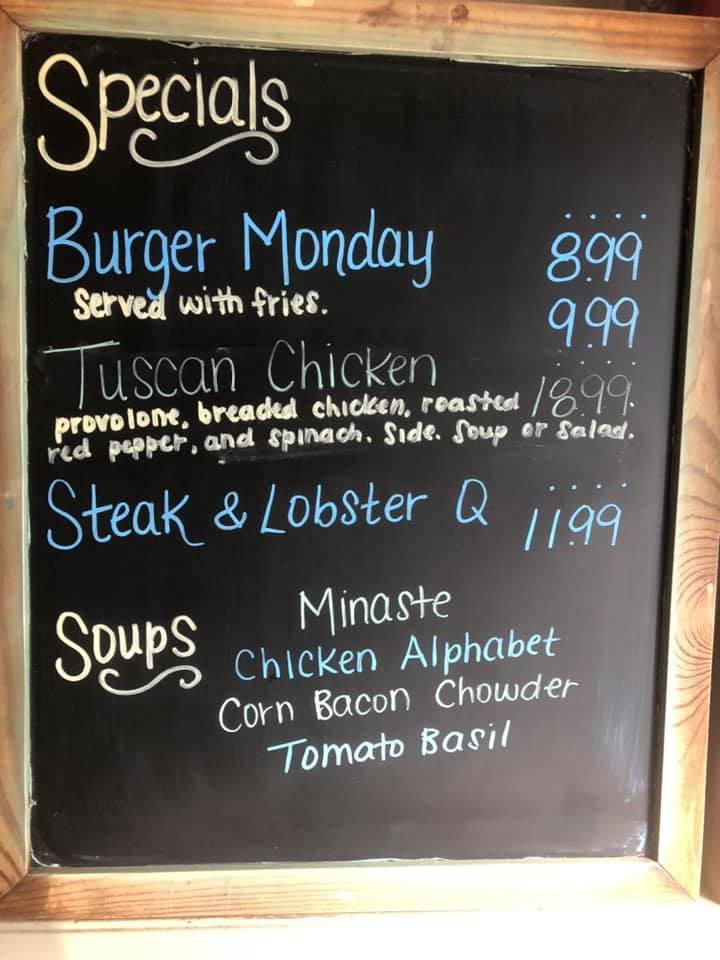 Specials
Burger Monday .... 8.99
Served with fries. 9.99
Tuscan Chicken .... 18.99
provolone, breaded chicken, roasted
red pepper, and spinach. Side. Soup or Salad.
Steak & Lobster Q .... 11.99
Soups
Minaste
Chicken Alphabet
Corn Bacon Chowder
Tomato Basil